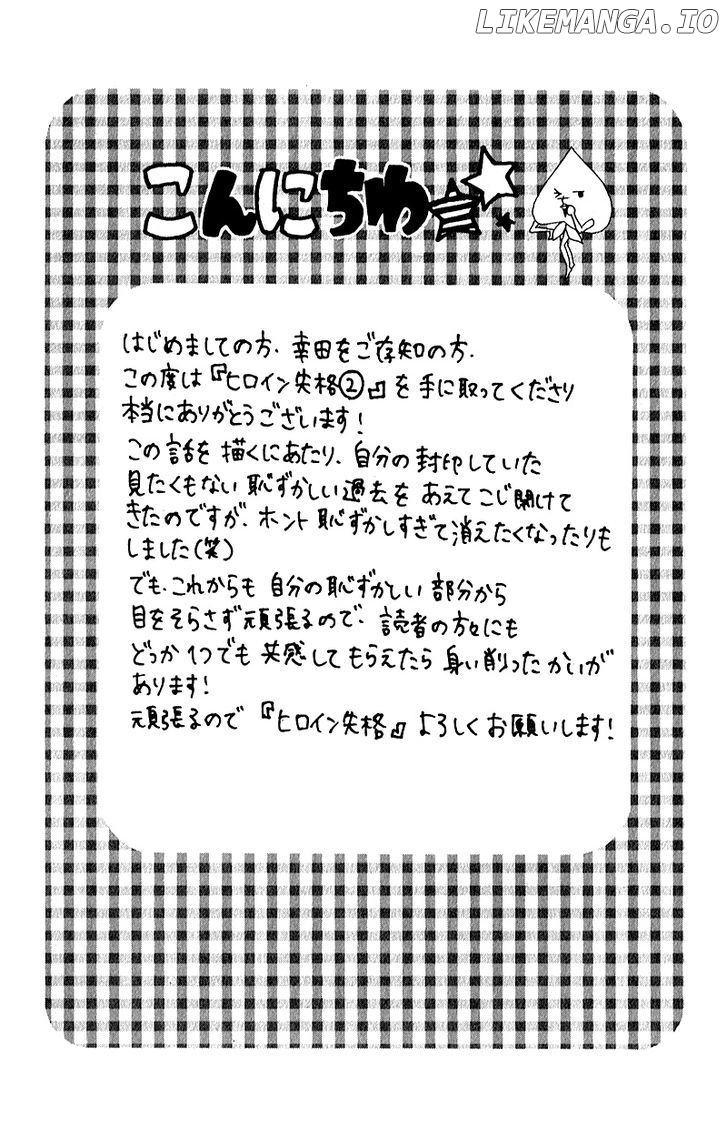 LIKEMANGA.IO
こんにちわ
はじめましての方、幸田をご存知の方、
この度は『ヒロイン失格②』を手に取ってくださり
本当にありがとうございます!
この話を描くにあたり、自分の封印していた
見たくもない恥ずかしい過去をあえてこじ開けて
きたのですが、ホント恥ずかしすぎて消えたくなったりも
しました(笑)
でも、これからも自分の恥ずかしい部分から
目をそらさず頑張るので、読者の方々にも
どっか1つでも共感してもらえたら身い削ったかいが
あります!
頑張るので『ヒロイン失格』よろしくお願いします!